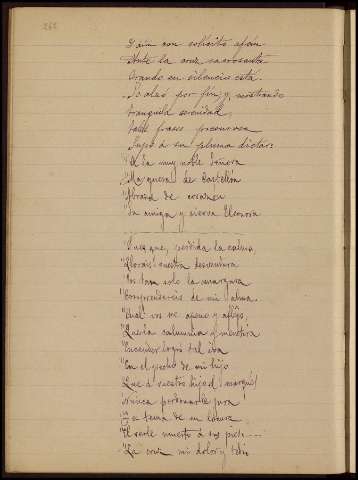 Y aún con solícito afán
Ante la cruz sacrosanta
Orando en silencio está.
Se alzó por fin, y mostrando
tranquila serenidad,
tales frases
á su pluma dictar:
"De la muy noble Señora
Marquesa de Castellón
de corazón
Su amiga y sierva Eleonora
Pues que, perdida la calma,
Llorais vuestra desventura
Vos tan solo la amargura
Comprendereis de mi alma.
"Cual vos me apeno y aflijo,
"Que la calumnia y mentira
"Encender logró tal ira
"En el pecho de mi hijo
Que á vuestro hijo ¡marqués!
nunca perdonarle jura
Es tema de su locura
"El verle muerto á sus pies...
"La mi dolor y